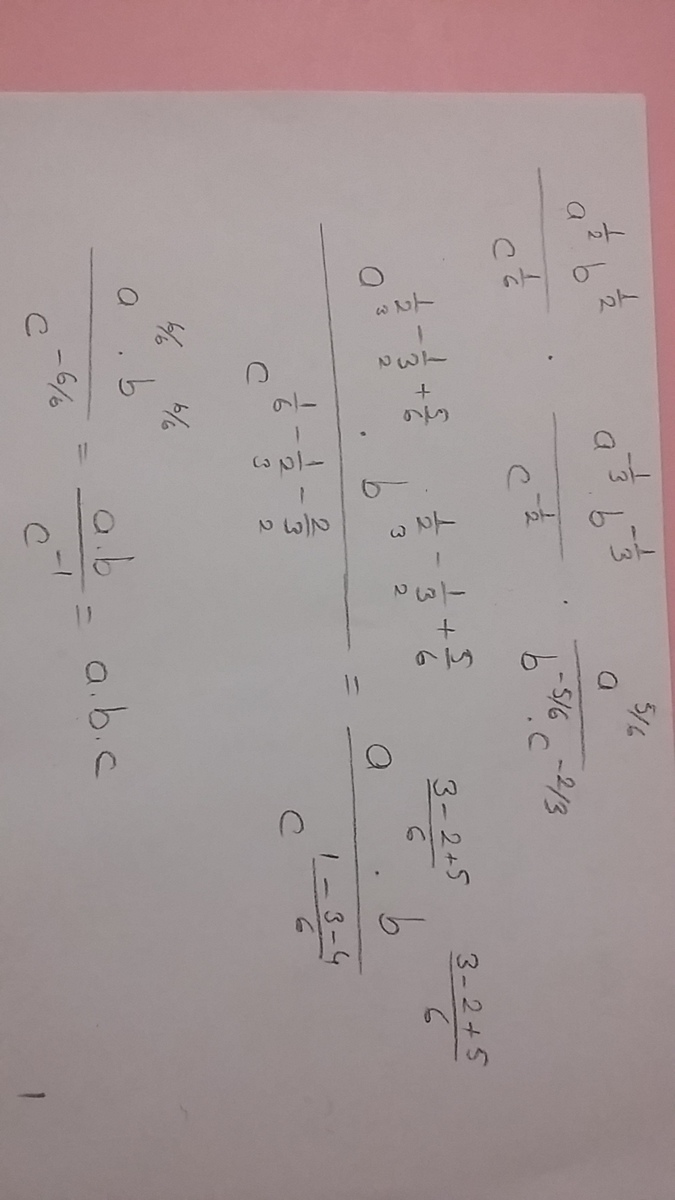 a^{1/2} b^{1/2} / c^{1/6} . a^{-1/3} . b^{-1/3} / c^{-1/2} . a^{5/6} / b^{-5/6} . c^{-2/3}
a^{1/2 - 1/3 + 5/6} . b^{1/2 - 1/3 + 5/6} / c^{1/6 - 1/2 - 2/3} = a^{(3-2+5)/6} . b^{(3-2+5)/6} / c^{(1-3-4)/6}
a^{6/6} . b^{6/6} / c^{-6/6} = a.b / c^{-1} = a.b.c